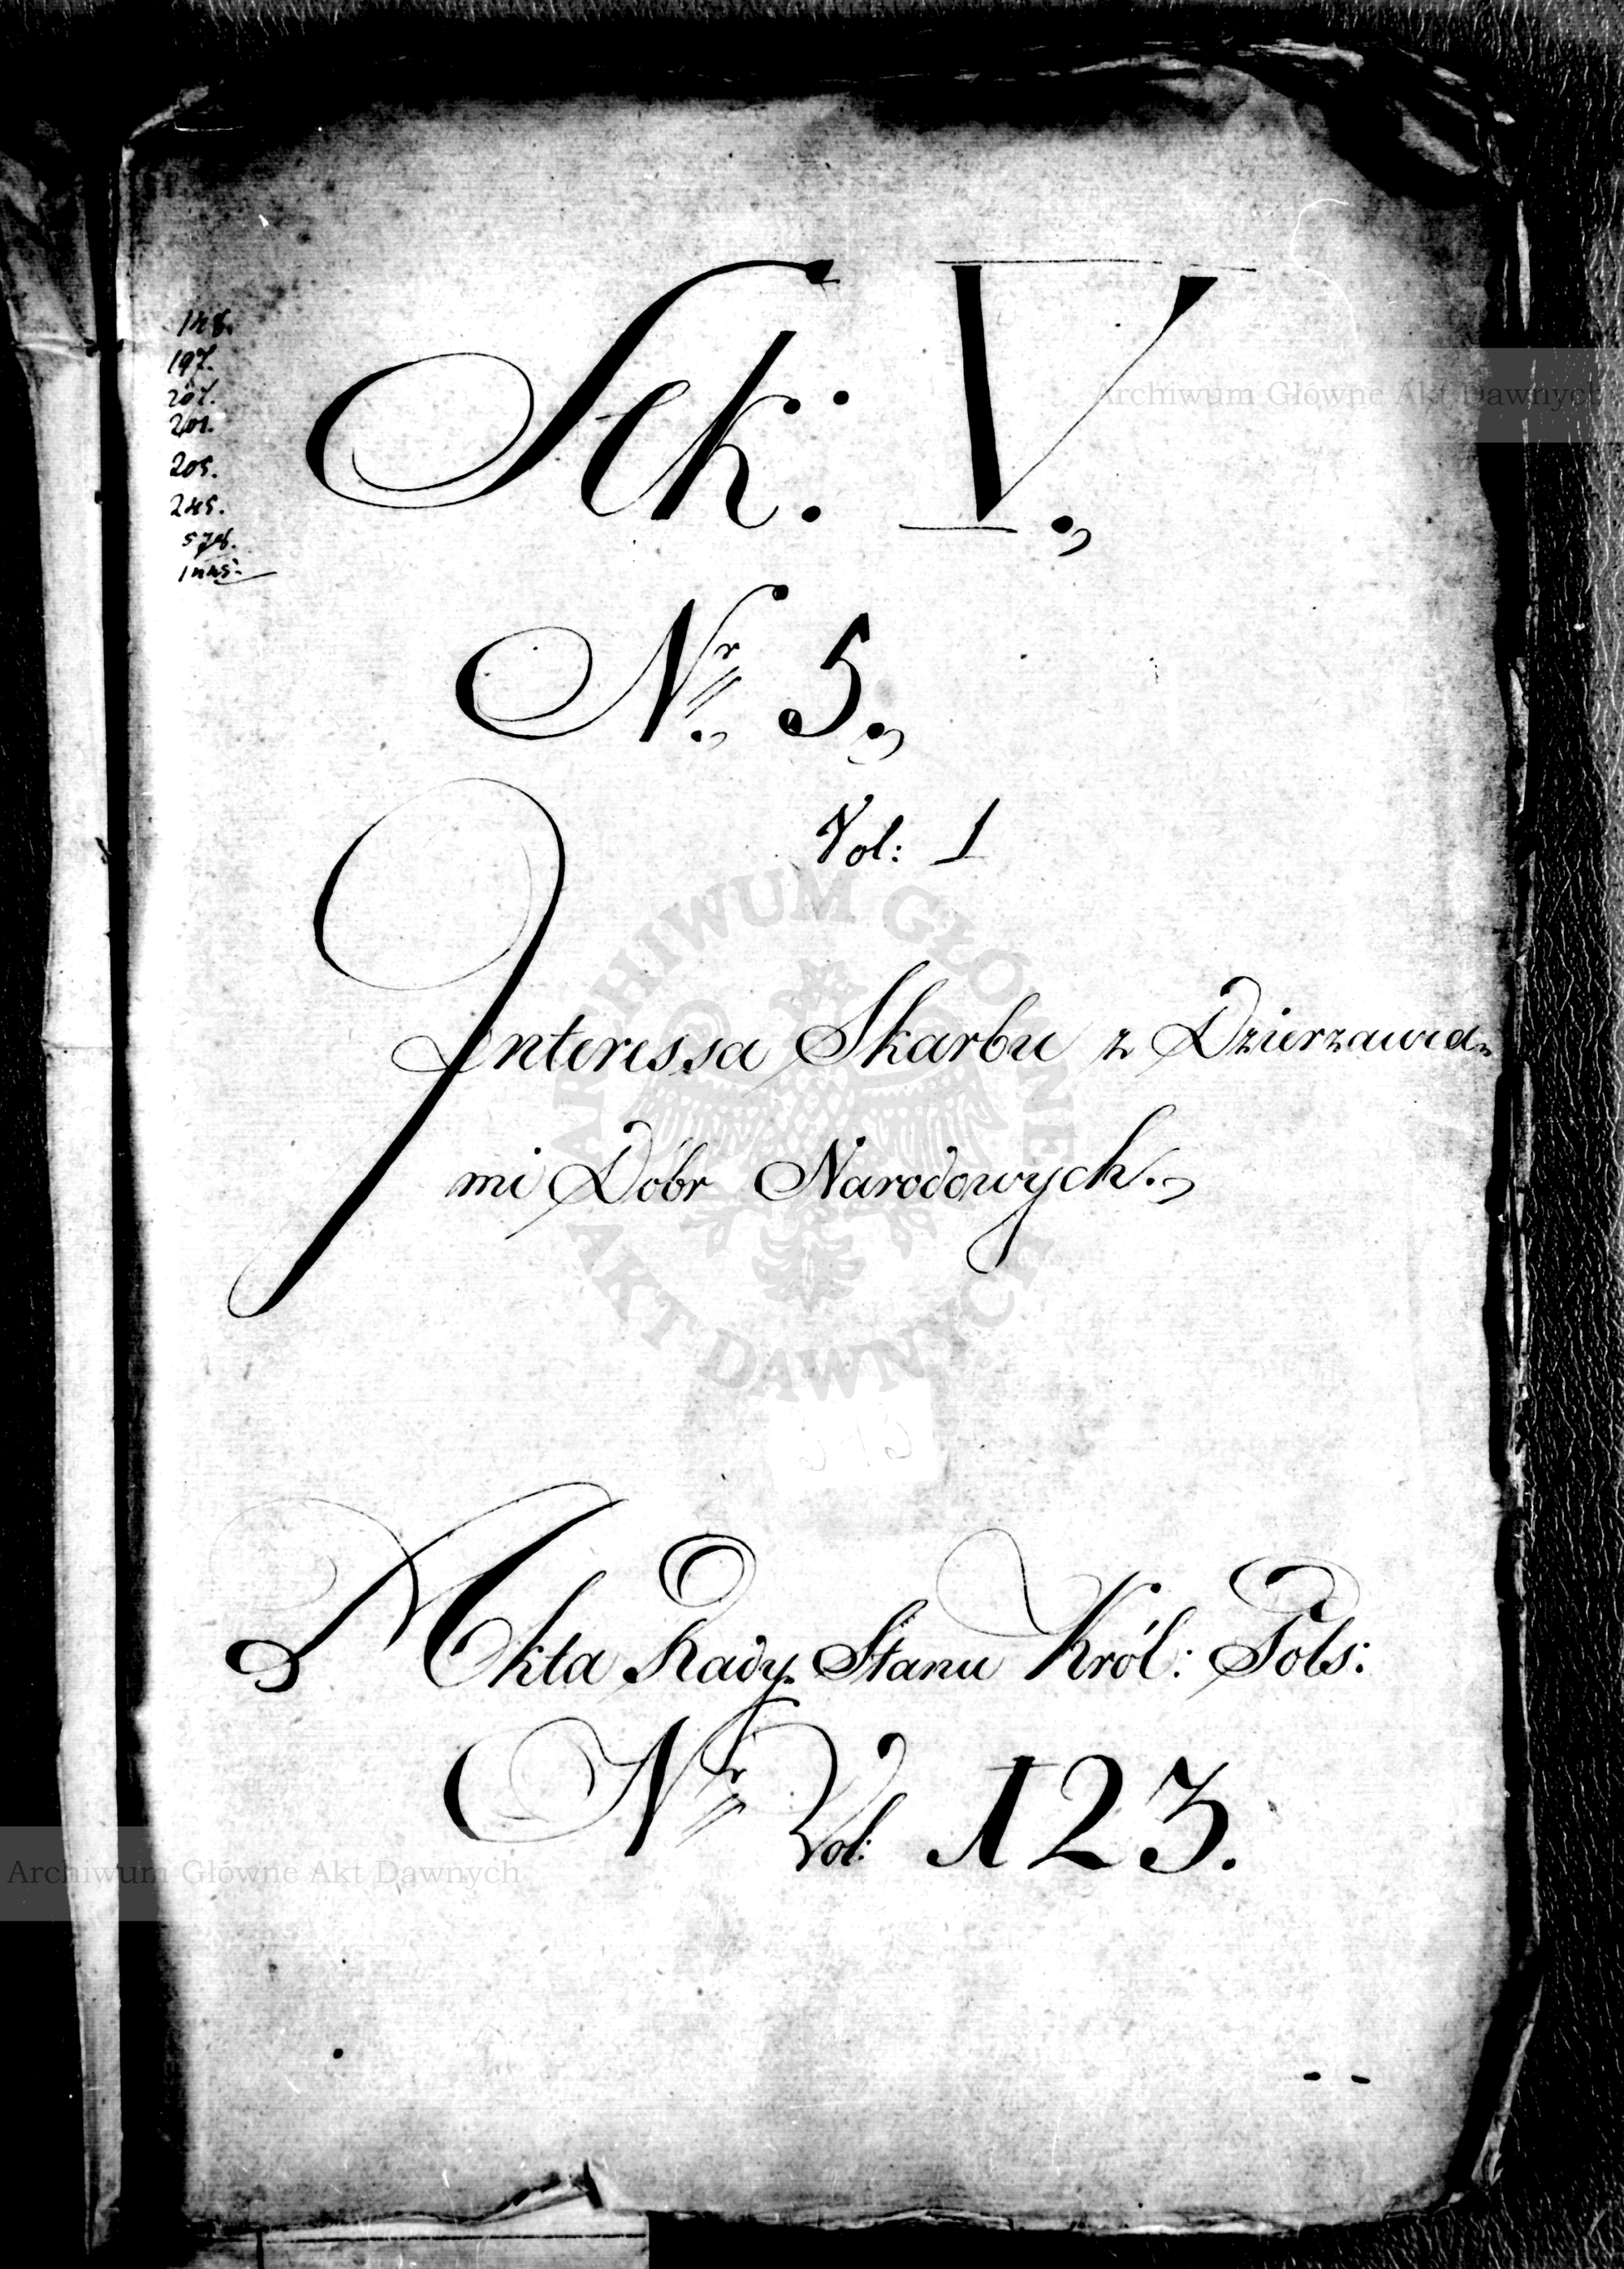 197.
201.
205.
245.
Sek: V.,
Nr. 5.,
Vol: 1
Interessa Skarbu z Dzierzawca-
mi Dóbr Narodowych.,
Akta Rady Stanu Król: Pols:
Nr Vol: 123.
Archiwum Główne Akt Dawnych
ARCHIWUM GŁÓWNE
AKT DAWNYCH
Archiwum Główne Akt Dawnych